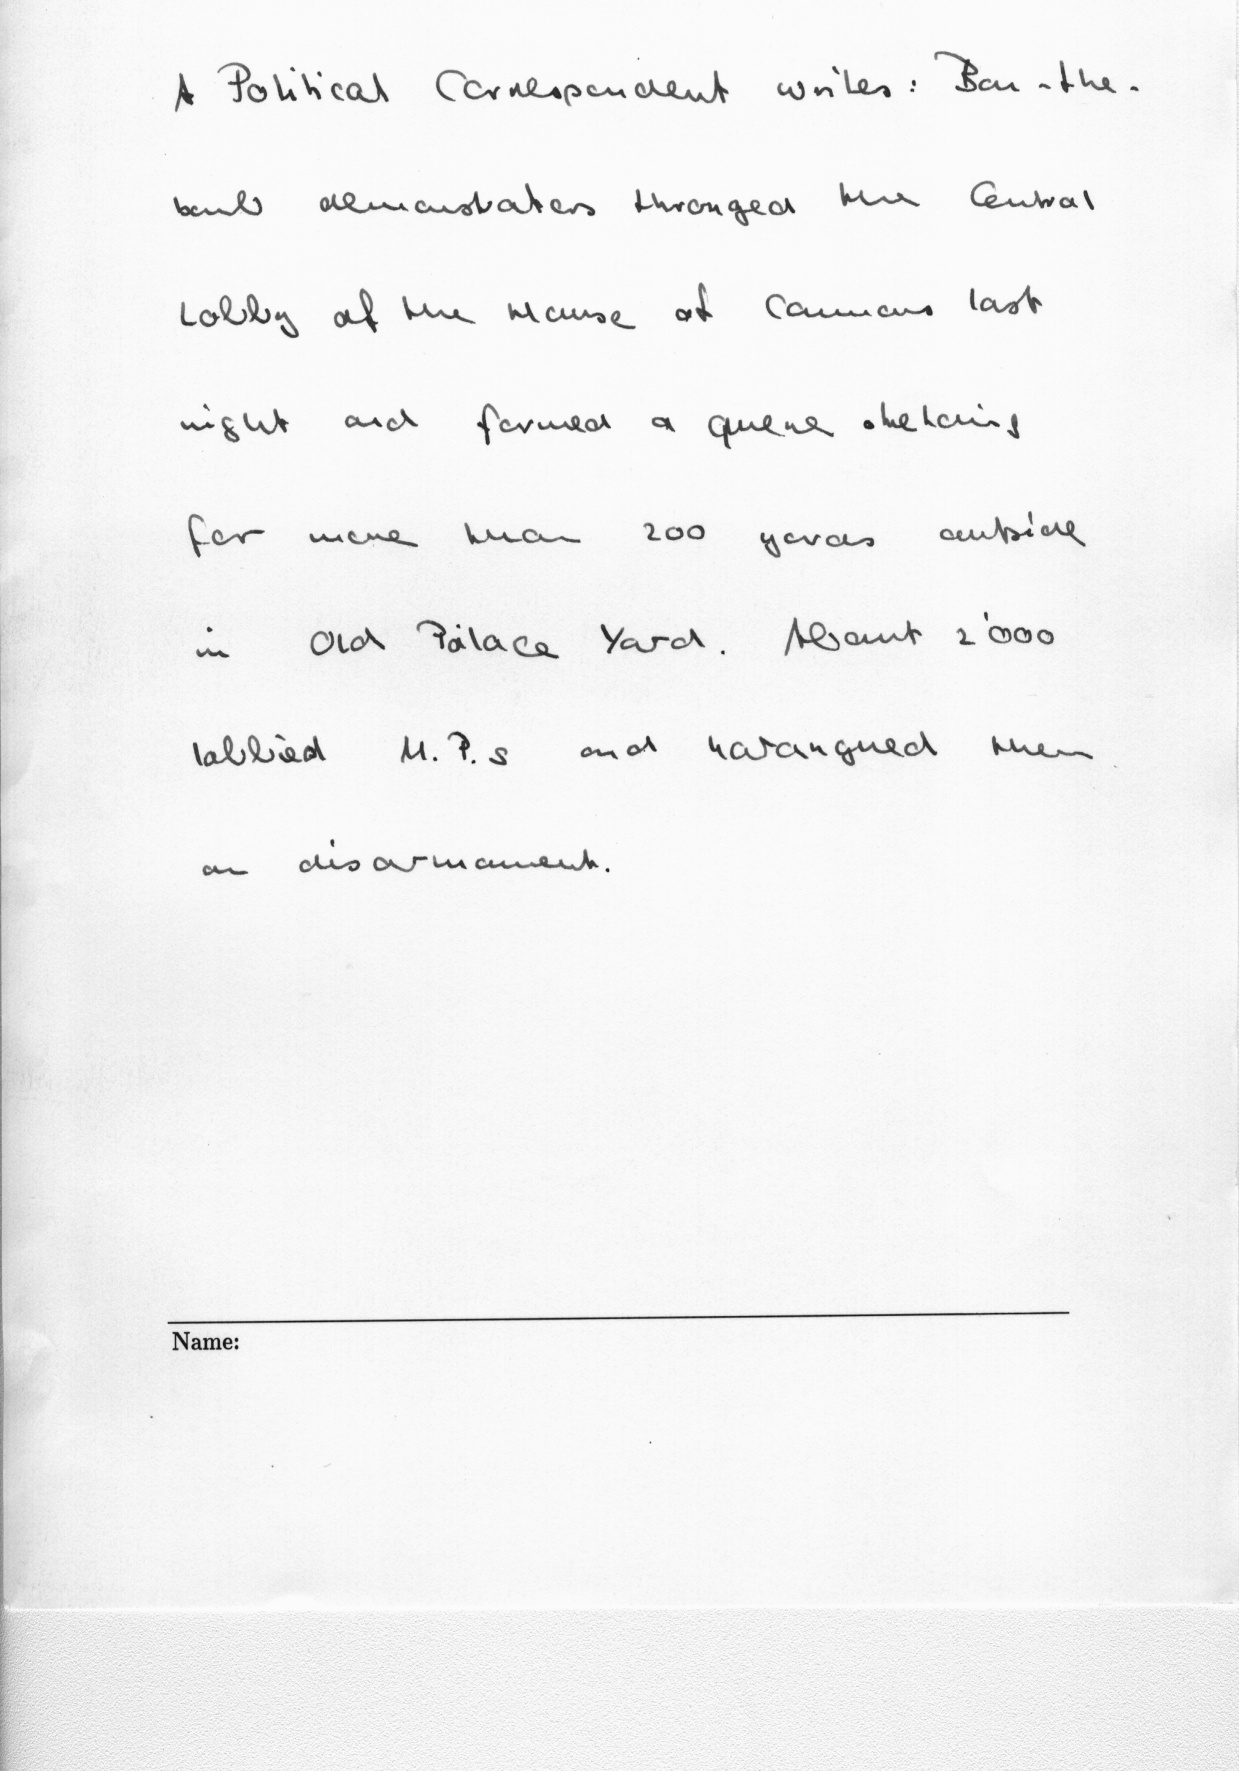 A Political Correspondent writes: Ban-the-
bomb demonstrators thronged the Central
Lobby of the House of Commons last
night and formed a queue stretching
for more than 200 yards outside
in Old Palace Yard. About 2'000
lobbied M.P.s and harangued them
on disarmament.
Name: